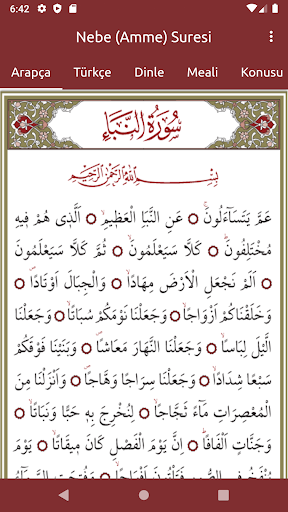 6:42
Nebe (Amme) Suresi
Arapça Türkçe Dinle Meali Konusu
سُورَةُ النَّبَاِ
بِسْمِ اللّٰهِ الرَّحْمٰنِ الرَّحِيمِ
عَمَّ يَتَسَٓاءَلُونَۚ عَنِ النَّبَاِ الْعَظِيمِۙ اَلَّذِى هُمْ فِيهِ
مُخْتَلِفُونَۜ كَلَّا سَيَعْلَمُونَۙ ثُمَّ كَلَّا سَيَعْلَمُونَ
اَلَمْ نَجْعَلِ الْاَرْضَ مِهَادًاۙ وَالْجِبَالَ اَوْتَادًاۖ
وَخَلَقْنَاكُمْ اَزْوَاجًاۙ وَجَعَلْنَا نَوْمَكُمْ سُبَاتًاۙ وَجَعَلْنَا
الَّيْلَ لِبَاسًاۙ وَجَعَلْنَا النَّهَارَ مَعَاشًاۖ وَبَنَيْنَا فَوْقَكُمْ
سَبْعًا شِدَادًاۙ وَجَعَلْنَا سِرَاجًا وَهَّاجًاۖ وَاَنْزَلْنَا مِنَ
الْمُعْصِرَاتِ مَٓاءً ثَجَّاجًاۙ لِنُخْرِجَ بِهِ حَبًّا وَنَبَاتًاۙ
وَجَنَّاتٍ اَلْفَافًاۜ اِنَّ يَوْمَ الْفَصْلِ كَانَ مِيقَاتًاۙ يَوْمَ
يُنْفَخُ فِى الصُّورِ فَتَاْتُونَ اَفْوَاجًاۙ وَفُتِحَتِ السَّمَٓاءُ